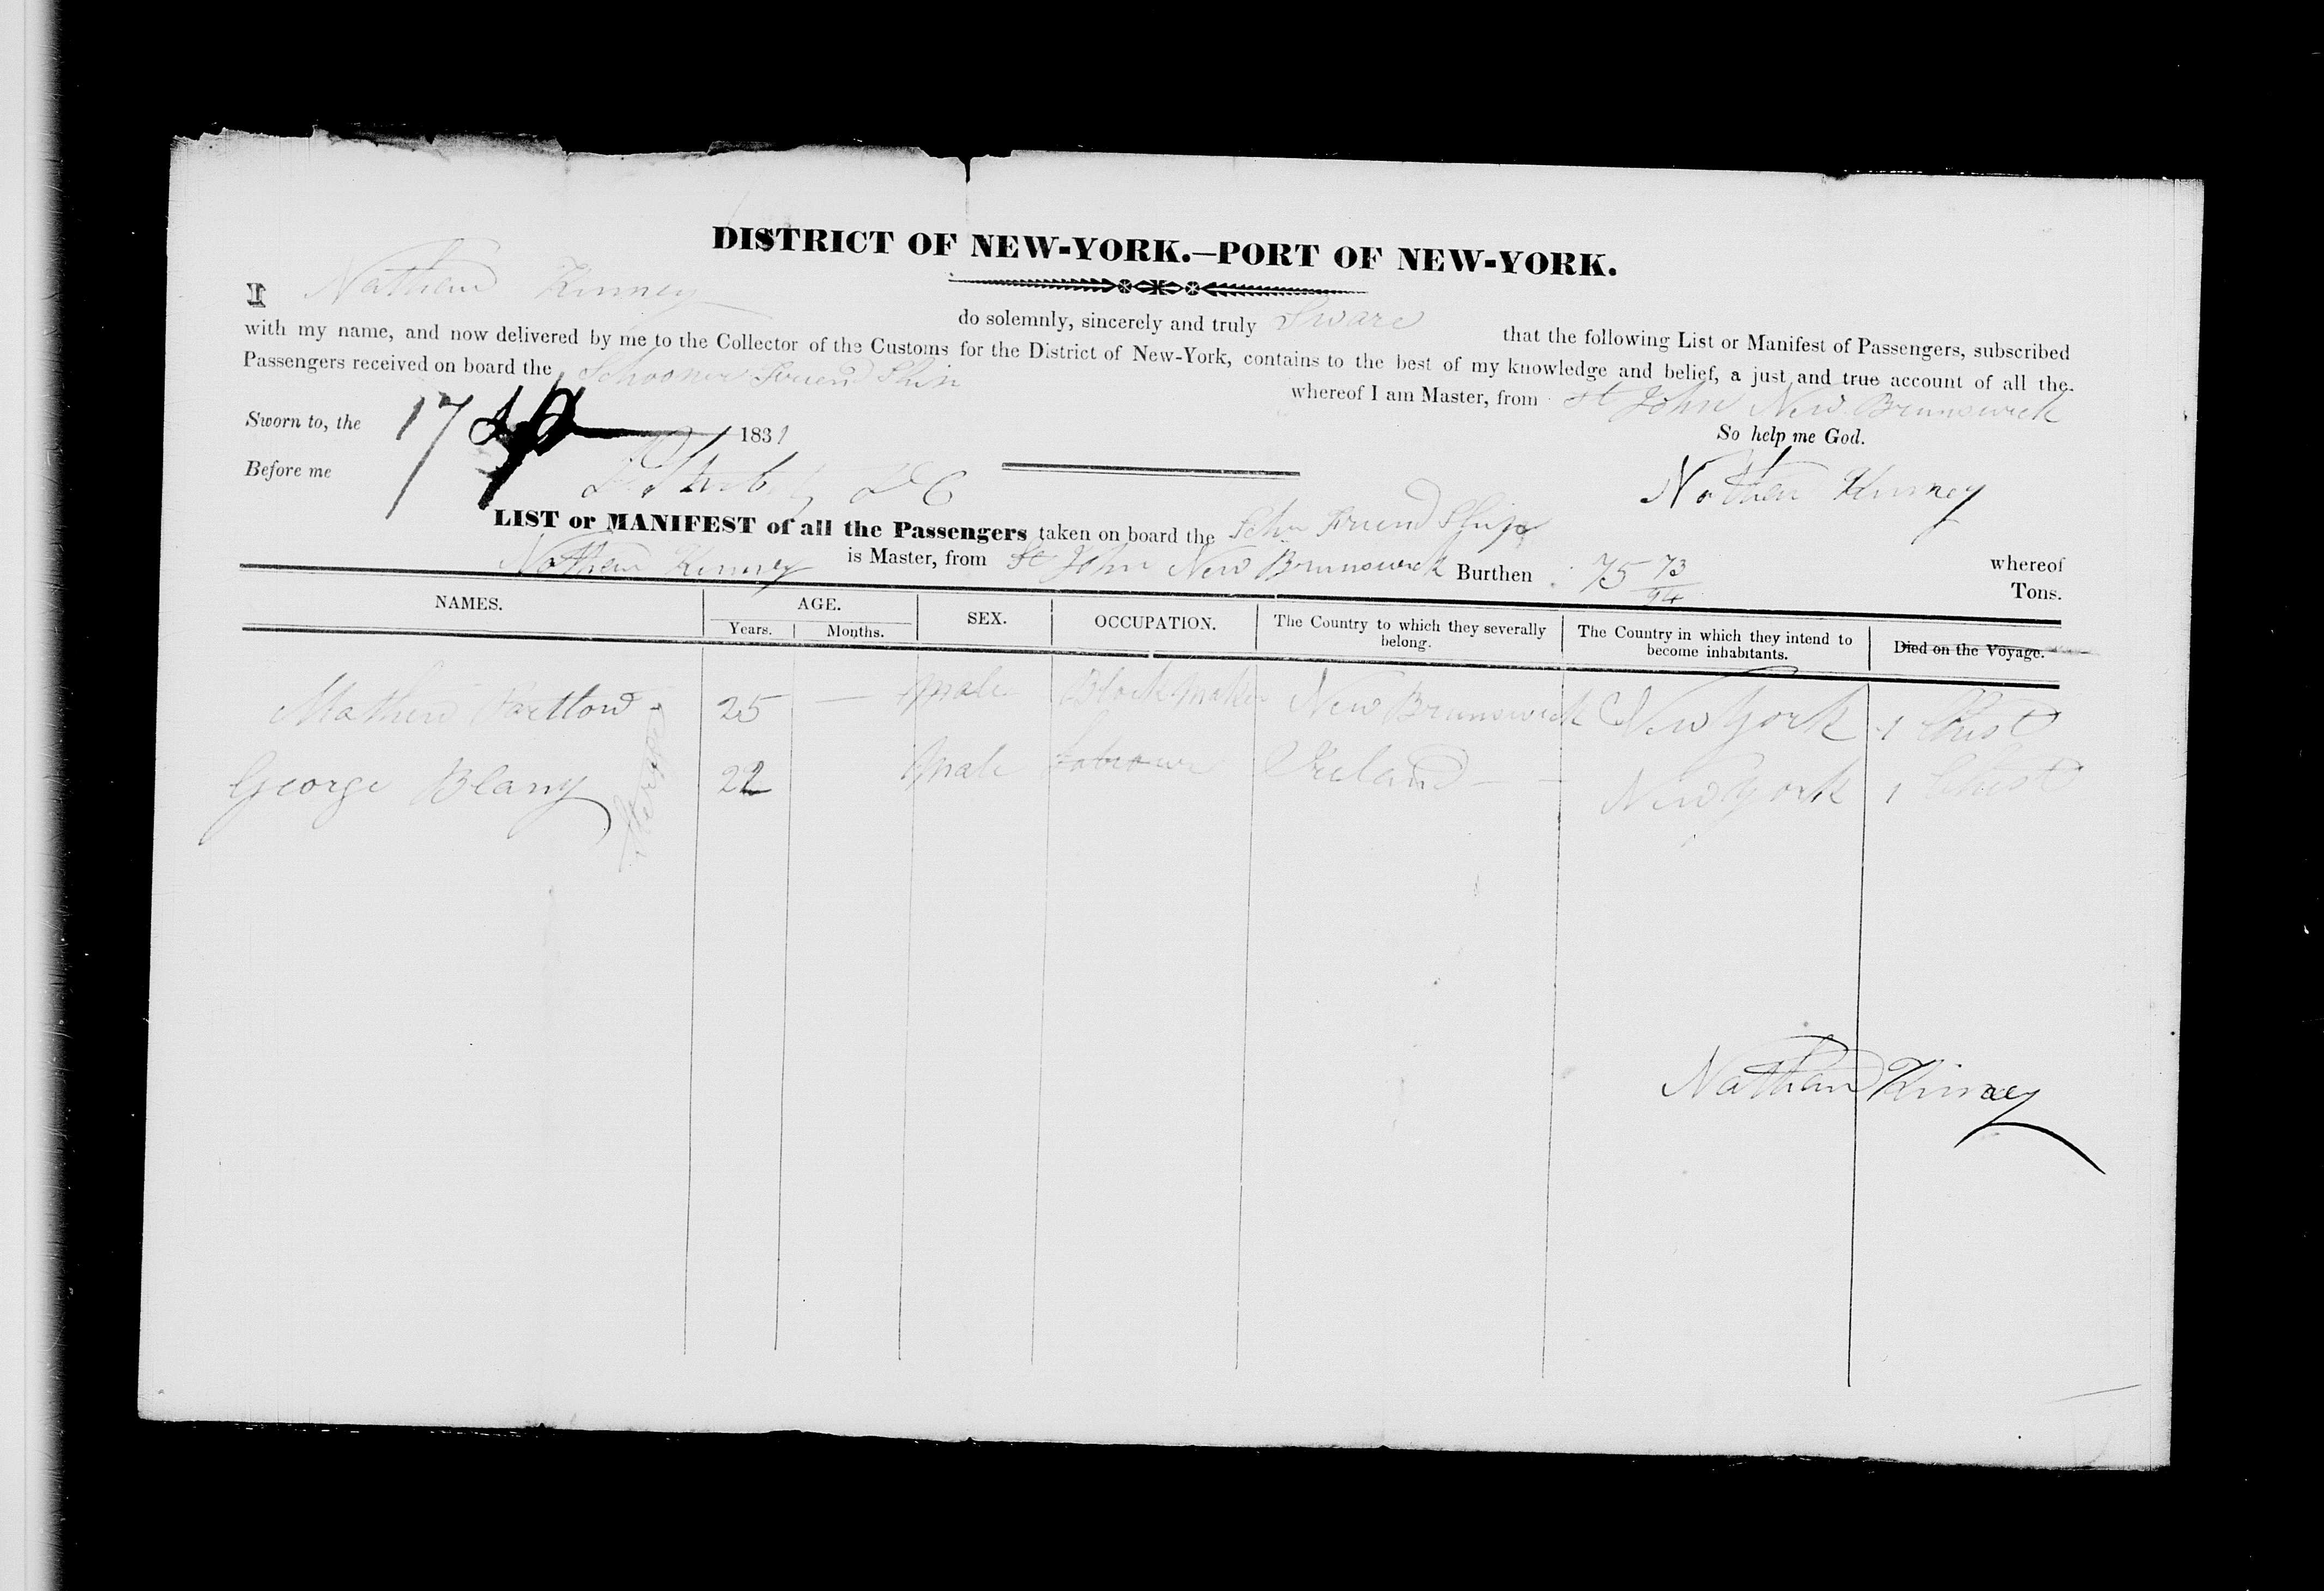 DISTRICT OF NEW-YORK.—PORT OF NEW-YORK.
I Nathan Kinney do solemnly, sincerely and truly Sware that the following List or Manifest of Passengers, subscribed
with my name, and now delivered by me to the Collector of the Customs for the District of New-York, contains to the best of my knowledge and belief, a just and true account of all the
Passengers received on board the Schooner Friend Ship whereof I am Master, from St John New Brunswick
Sworn to, the 17 1831 So help me God.
Before me D C Nathan Kinney
LIST or MANIFEST of all the Passengers taken on board the Schr Friend Ship whereof
Nathan Kinney is Master, from St John New Brunswick Burthen 75 73/94 Tons.
NAMES. AGE. SEX. OCCUPATION. The Country to which they severally belong. The Country in which they intend to become inhabitants. Died on the Voyage.
Years. Months.
Mathew Partlow 25 — Male Block Maker New Brunswick New York 1 Chest
George Blany 22 Male Labrour Ireland — — New York 1 Chest
Sterage
Nathan Kinney